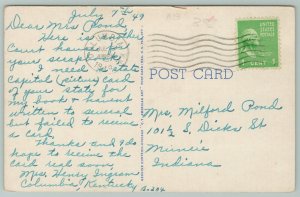 July 7th '49
Dear Mrs Pond
Here is another
Court house for
your scrapbook.
I need a state
capitol (picture) card
of your state for
my book & havent
written to several
but failed to receive
a card.
Thanks and I do
hope to receive the
card real soon
Mrs Henry Ingram
Columbia Kentucky
POST CARD
Mrs. Milford Pond
101½ S. Dicks St
Muncie
Indiana